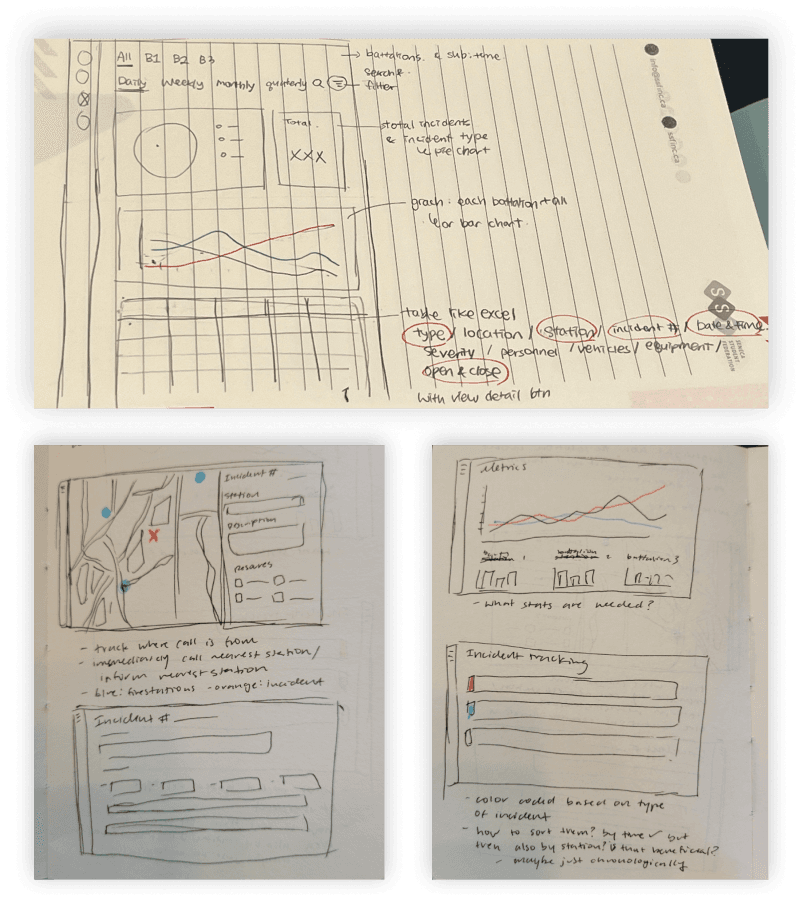 All B1 B2 B3
battalions & sub: time
Daily weekly monthly quarterly
search &
filter
Total
XXX
total incidents
& incident type
pie chart
graph: each battalion + all
or bar chart
table like excel
type / location / station / incident # / Date & time
severity / personnel / vehicles / equipment /
open & close
with view detail btn
info@ssfinc.ca
ssfinc.ca
SENECA
STUDENT
FEDERATION
Incident #
Station
- track where call is from
- immediately call nearest station/
inform nearest station
- blue: firestations - orange: incident
Incident #
Metrics
1
2
battalion 3
- what stats are needed?
Incident tracking
- color coded based on type
of incident
- how to sort them? by time but
then also by station? is that beneficial?
- maybe just chronologically